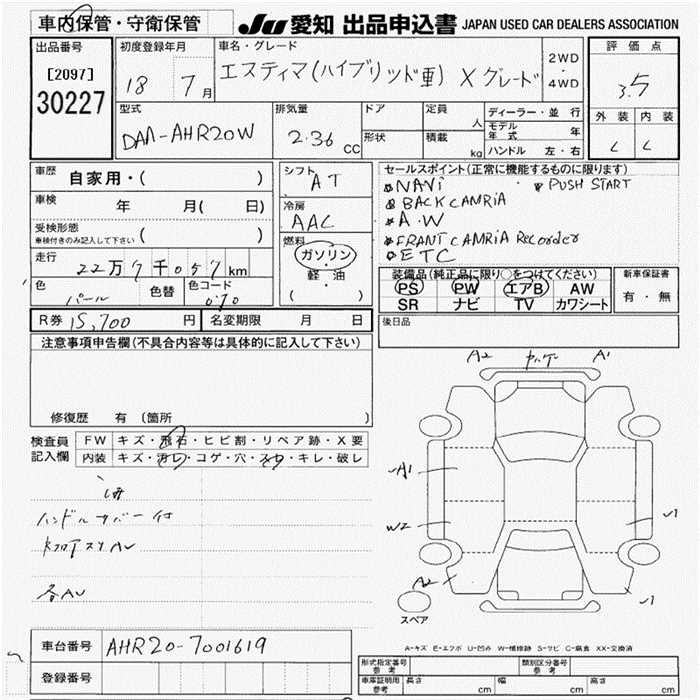 車内保管・守衛保管
JU 愛知 出品申込書 JAPAN USED CAR DEALERS ASSOCIATION
出品番号
[2097]
30227
初度登録年月
18 7月
車名・グレード
エスティマ(ハイブリッド車) Xグレード
2WD
・
4WD
評価点
3.5
外装 内装
C C
型式
DAA-AHR20W
排気量
2.36 CC
ドア
形状
定員
人
積載
kg
ディーラー・並行
モデル年式 年
ハンドル 左・右
車歴 自家用・( )
車検 年 月( 日)
受検形態
車検付きのみ記入して下さい ( )
走行 22万7千057km
色 パール 色替 色コード 070
シフト AT
冷房 AAC
燃料
ガソリン
・
軽・油
( )
セールスポイント(正常に機能するものに限ります)
NAVi PUSH START
BACK CAMRIA
A.W
FRANT CAMRIA Recorder
ETC
装備品(純正品に限り○をつけてください)
PS PW エアB AW
SR ナビ TV カワシート
新車保証書
有・無
後日品
R券 15,700 円 名変期限 月 日
注意事項申告欄(不具合内容等は具体的に記入して下さい)
修復歴 有 (箇所 )
検査員記入欄
FW キズ・飛石・ヒビ割・リペア跡・X要
内装 キズ・汚れ・コゲ・穴・スレ・キレ・破レ
ハンドルカバー付
各AU
A2 A1
A1
W2
A2
スペア
A-キズ E-エクボ U-凹み W-補修跡 S-サビ C-腐食 XX-交換済
車台番号 AHR20-7001619
登録番号
形式指定番号 参考
類別区分番号 参考
車庫証明用 参考 長さ cm 幅 cm 高さ cm